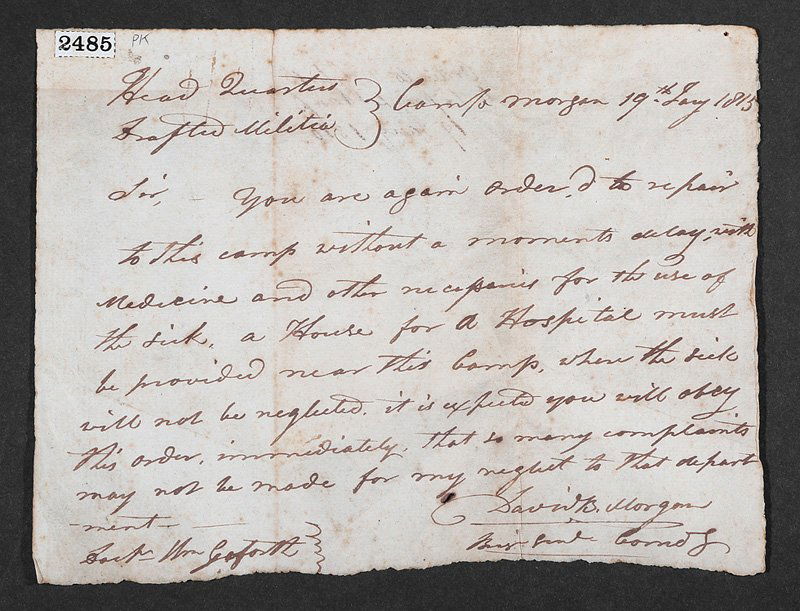 2485 PK
Head Quarters
Drafted Militia } Camp Morgan 19th Jay 1815
Sir, - You are again order,d to repair
to this camp without a moments delay, with
Medicine and other necessaries for the use of
the sick, a House for a Hospital must
be provided near this Camp, where the sick
will not be neglected, it is expected you will obey
this order, immediately, that so many complaints
may not be made for my neglect to that depart
-ment-
David B. Morgan
Doctr Wm Goforth
Brir Genl Comdg